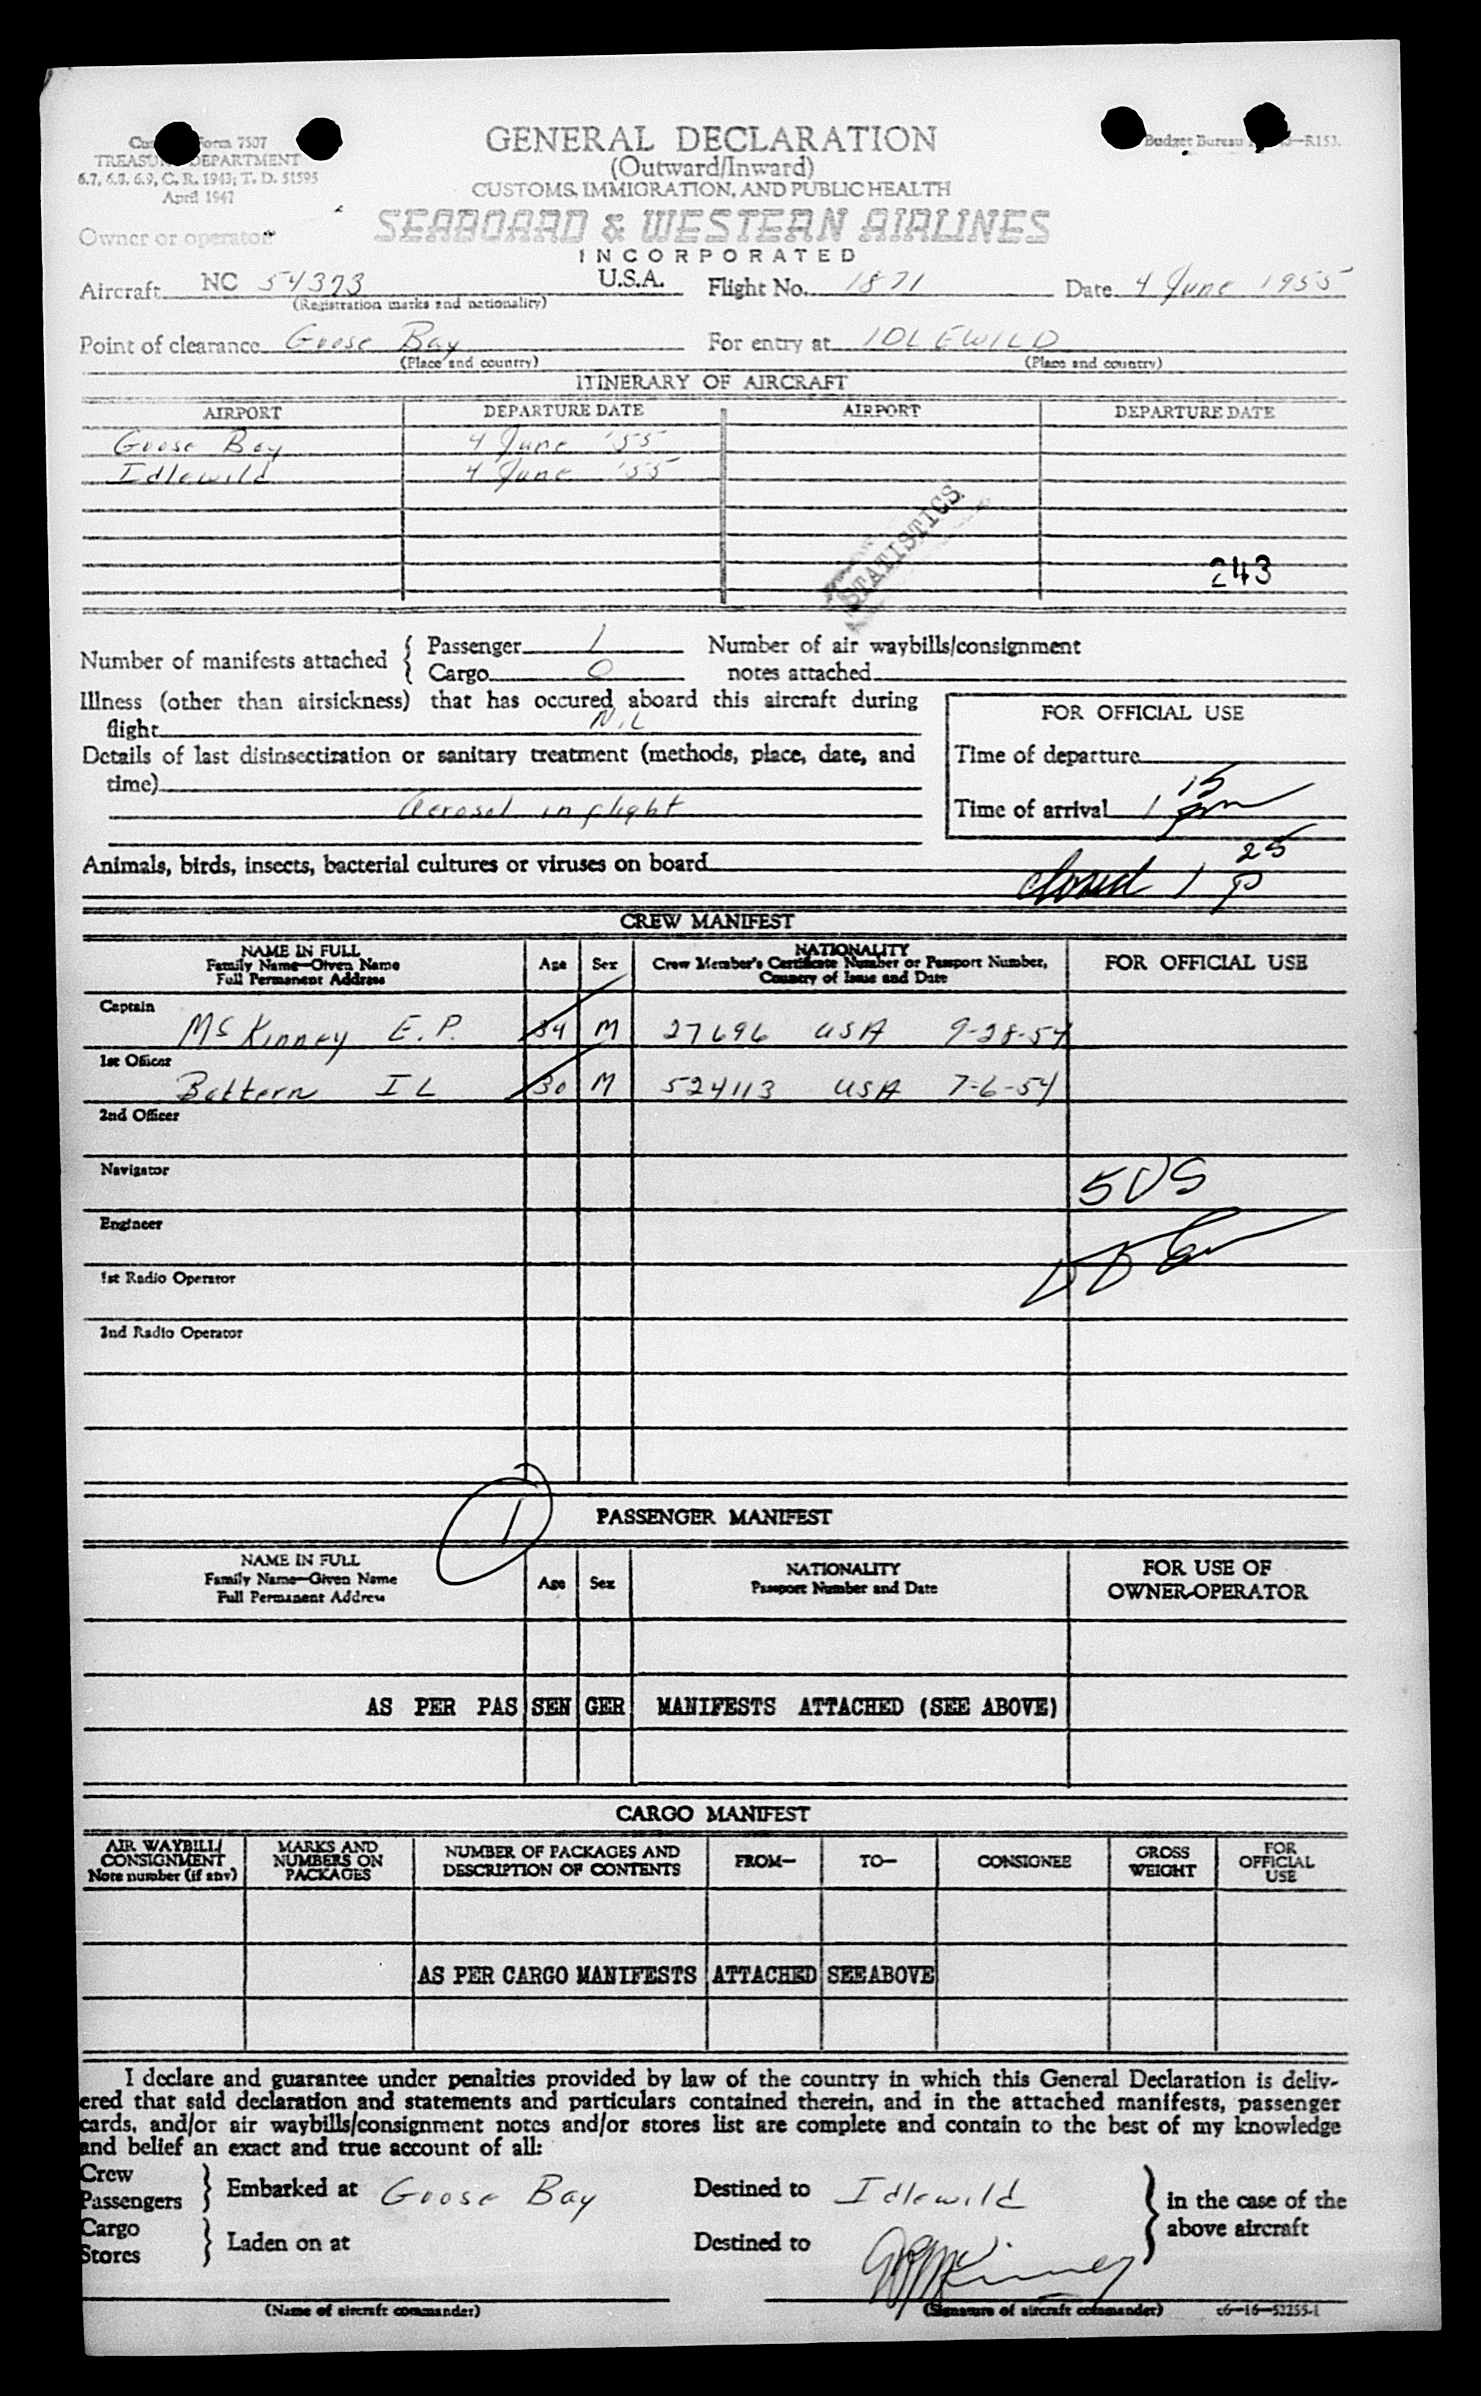 GENERAL DECLARATION
(Outward/Inward)
CUSTOMS, IMMIGRATION, AND PUBLIC HEALTH
Form 7507
TREASURY DEPARTMENT
6.7, 6.8, 6.9, C. R. 1943; T. D. 51595
April 1947
Budget Bureau R153.
Owner or operator SEABOARD & WESTERN AIRLINES
INCORPORATED
Aircraft NC 54373 U.S.A. Flight No. 1871 Date 4 June 1955
(Registration marks and nationality)
Point of clearance Goose Bay For entry at IDLEWILD
(Place and country) (Place and country)
ITINERARY OF AIRCRAFT
AIRPORT DEPARTURE DATE AIRPORT DEPARTURE DATE
Goose Bay 4 June '55
Idlewild 4 June '55
STATISTICS
243
Number of manifests attached { Passenger 1 Number of air waybills/consignment
Cargo 0 notes attached
Illness (other than airsickness) that has occured aboard this aircraft during
flight Nil
FOR OFFICIAL USE
Details of last disinsectization or sanitary treatment (methods, place, date, and
time)
Aerosol in flight
Time of departure
Time of arrival 1 15 pm
Animals, birds, insects, bacterial cultures or viruses on board
closed 1 25 P
CREW MANIFEST
NAME IN FULL
Family Name—Given Name
Full Permanent Address
Age Sex
NATIONALITY
Crew Member's Certificate Number or Passport Number,
Country of Issue and Date
FOR OFFICIAL USE
Captain
McKinney E. P. 34 M 27696 USA 9-28-54
1st Officer
Battern I L 30 M 524113 USA 7-6-54
2nd Officer
Navigator
5 US
Engineer
1st Radio Operator
2nd Radio Operator
1
PASSENGER MANIFEST
NAME IN FULL
Family Name—Given Name
Full Permanent Address
Age Sex
NATIONALITY
Passport Number and Date
FOR USE OF
OWNER-OPERATOR
AS PER PAS SEN GER MANIFESTS ATTACHED (SEE ABOVE)
CARGO MANIFEST
AIR WAYBILL/
CONSIGNMENT
Note number (if any)
MARKS AND
NUMBERS ON
PACKAGES
NUMBER OF PACKAGES AND
DESCRIPTION OF CONTENTS
FROM— TO— CONSIGNEE
GROSS
WEIGHT
FOR
OFFICIAL
USE
AS PER CARGO MANIFESTS ATTACHED SEE ABOVE
I declare and guarantee under penalties provided by law of the country in which this General Declaration is deliv-
ered that said declaration and statements and particulars contained therein, and in the attached manifests, passenger
cards, and/or air waybills/consignment notes and/or stores list are complete and contain to the best of my knowledge
and belief an exact and true account of all:
Crew
Passengers } Embarked at Goose Bay Destined to Idlewild } in the case of the
above aircraft
Cargo
Stores } Laden on at Destined to
EP McKinney
(Name of aircraft commander) (Signature of aircraft commander) c6—16—52255-1